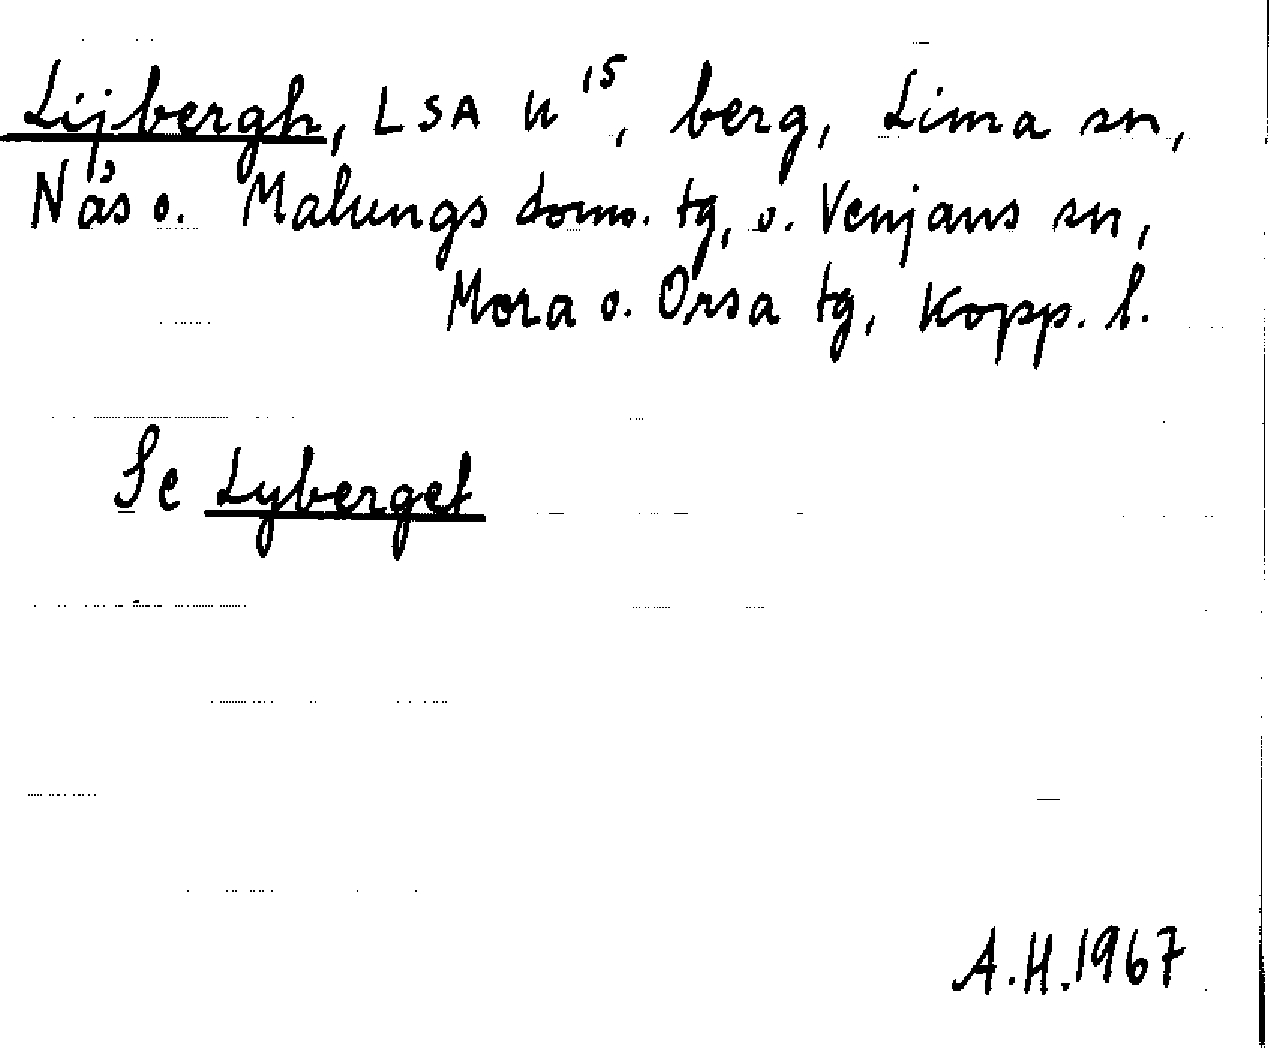 Lijbergh, LSA u 15, berg, Lima sn,
Nås o. Malungs doms. tg, o. Venjans sn,
Mora o. Orsa tg, Kopp. l.
Se Lyberget
A.H. 1967